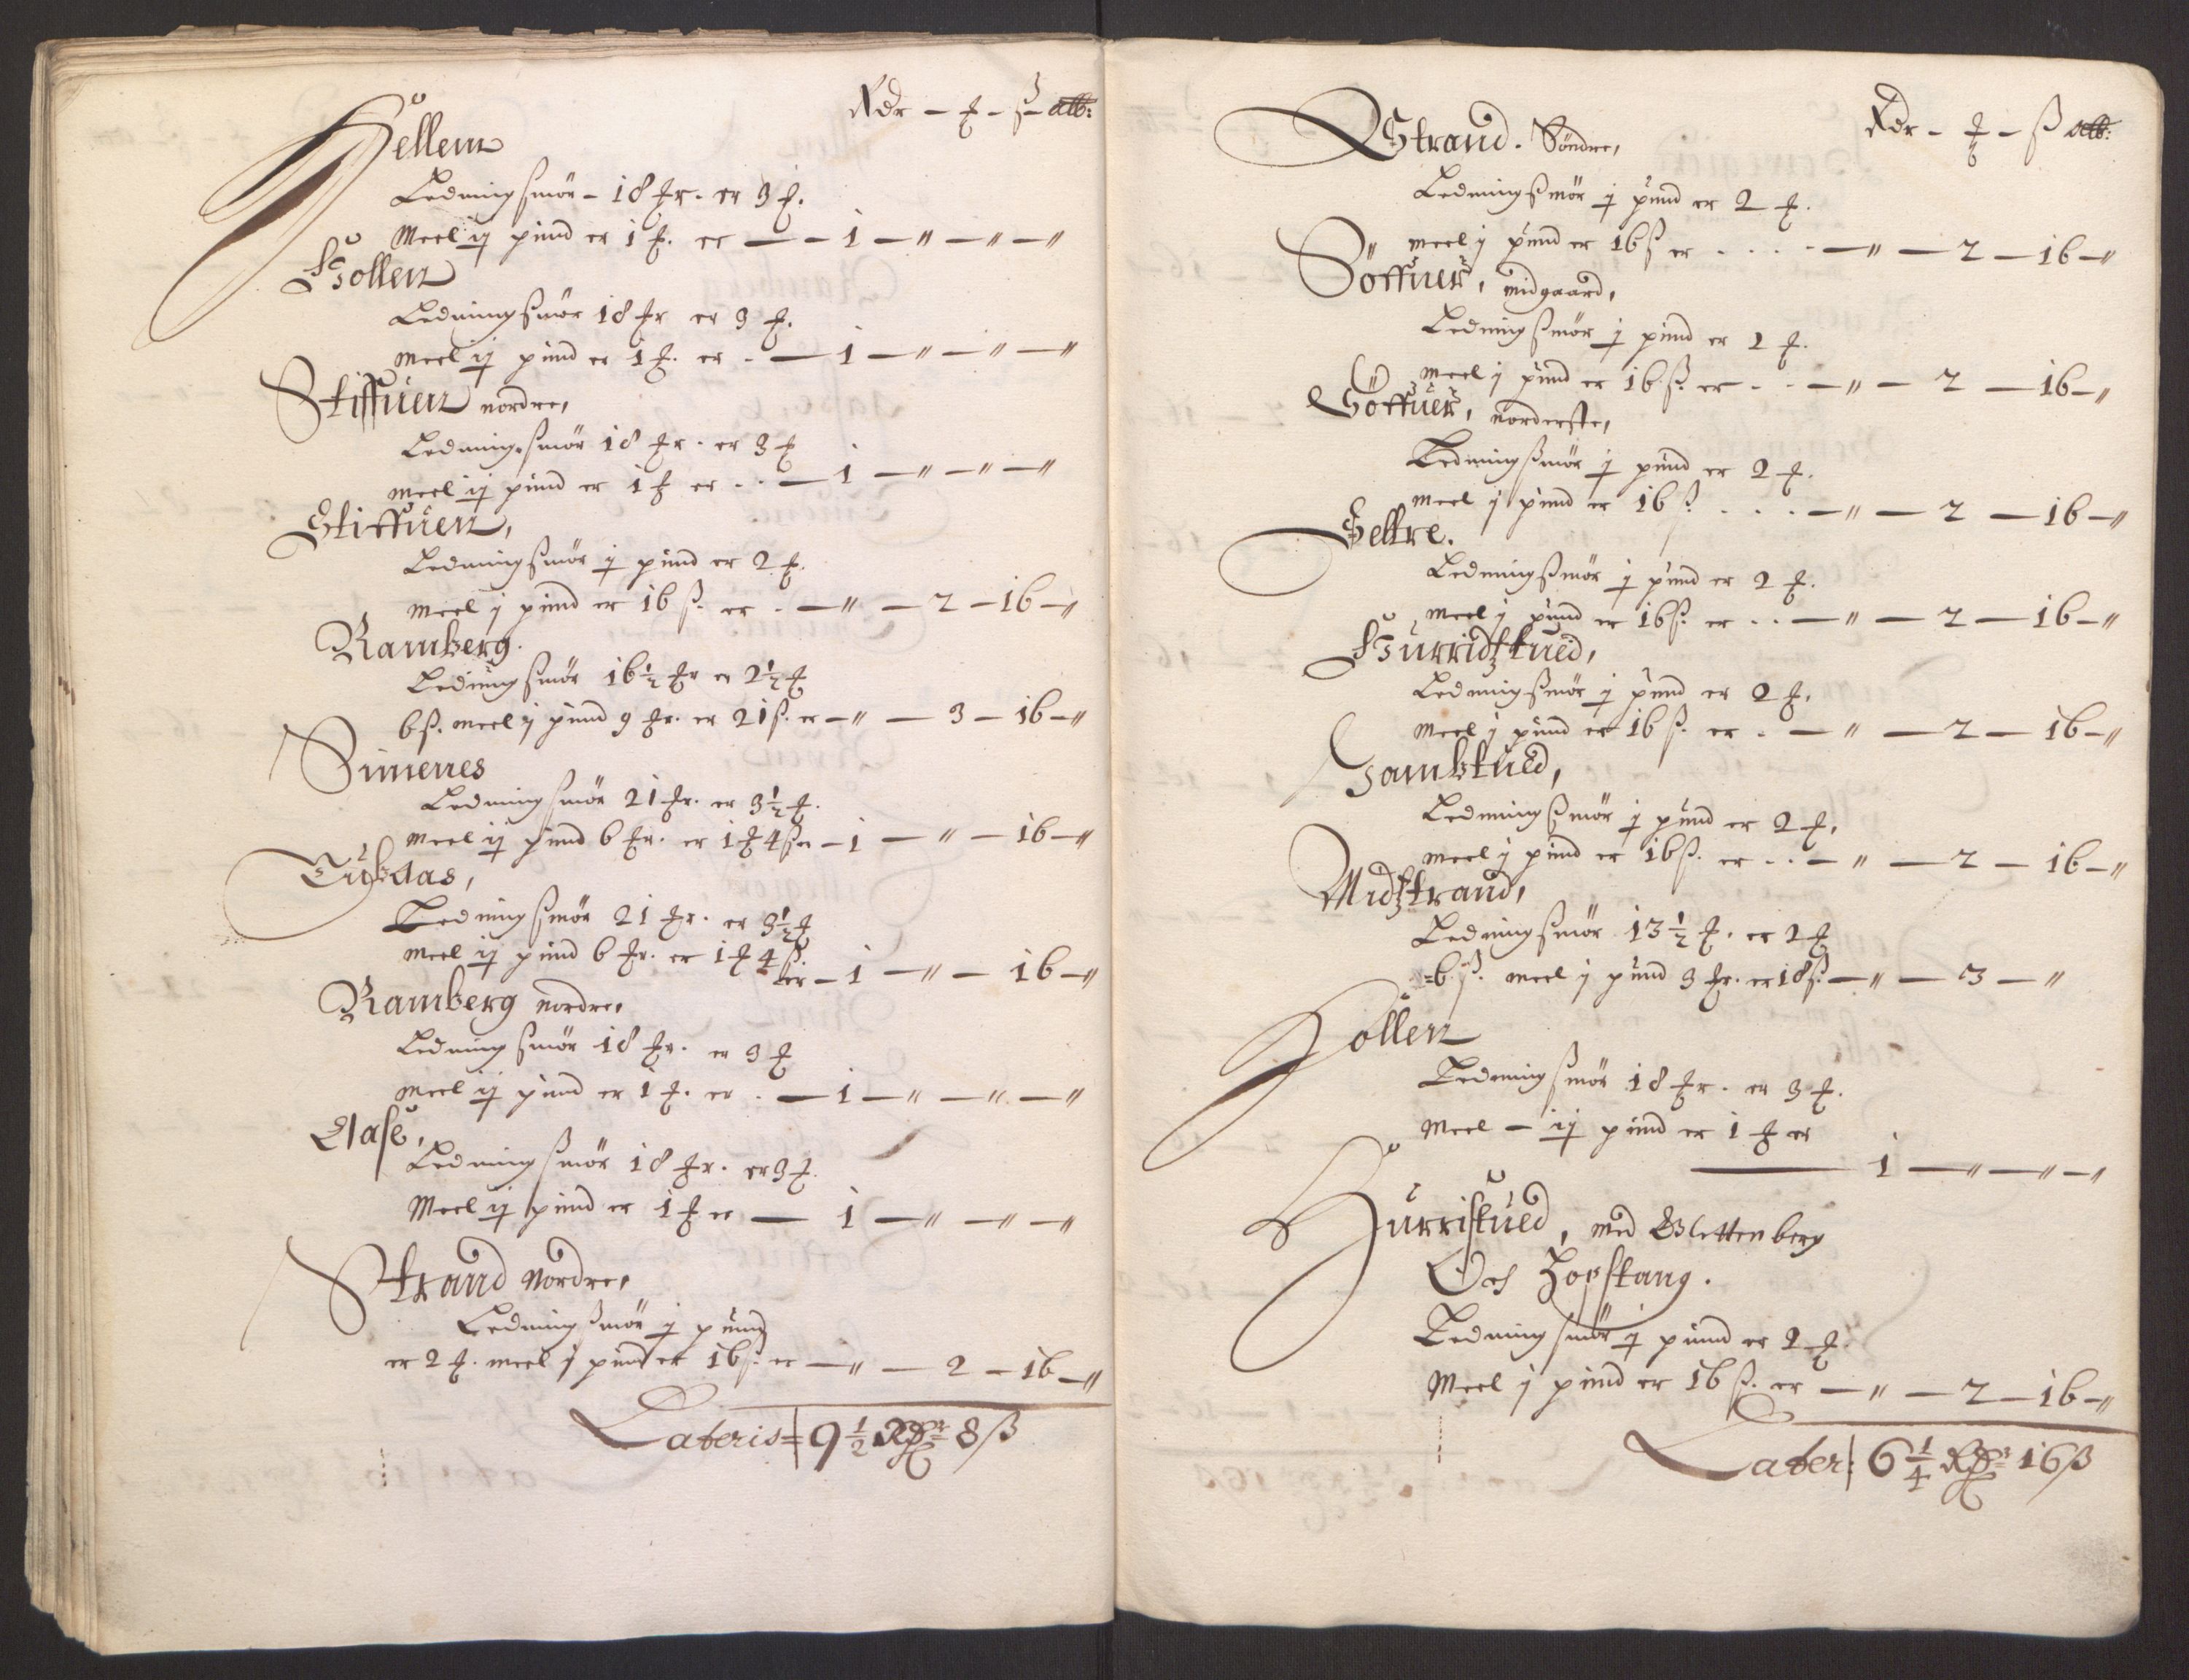 Rdr - ƶ - ß - alb:
Hellem
Ledning smör - 18 ƶr. er 3 ƶ.
Meel ij pund er 1 ƶ. er — 1 — " — " — "
Hollen
Ledning smör 18 ƶr er 3 ƶ.
meel ij pund er 1 ƶ. er - — 1 — " — " — "
Stiffuen nordre,
Ledning smör 18 ƶr. er 3 ƶ
meel ij pund er 1 ƶ er . . — 1 — " — " — "
Stiffuen,
Ledning smör j pund er 2 ƶ.
meel j pund er 16 ß. er . — " — 2 — 16 — "
Ramberg.
Ledning smör 16½ ƶr er 2½ ƶ
6 ß. meel j pund 9 ƶr. er 21 ß. er — " — 3 — 16 — "
Simenes
Ledning smör 21 ƶr. er 3½ ƶ.
meel ij pund 6 ƶr. er 1 ƶ 4 ß er — 1 — " — 16 — "
Ledning smör 21 ƶr. er 3½ ƶ
meel ij pund 6 ƶr. er 1 ƶ 4 ß.
er — 1 — " — 16 — "
Ramberg nordre,
Ledning smör 18 ƶr. er 3 ƶ
meel ij pund er 1 ƶ. er . — 1 — " — " — "
Aase,
Ledning smör 18 ƶr. er 3 ƶ.
Meel ij pund er 1 ƶ er — 1 — " — " — "
Strand Nordre,
Ledning smör j pund
er 2 ƶ. meel j pund er 16 ß. er — " — 2 — 16 — "
Lateris 9½ Rdr 8 ß
Rdr - ƶ - ß alb:
Strand. Söndre,
Ledning smör j pund er 2 ƶ.
meel j pund er 16 ß er . . . . — " — 2 — 16 — "
Söffuer, midgaard,
Ledning smör j pund er 2 ƶ.
meel j pund er 16 ß. er . . — " — 2 — 16 — "
Söffuer, norderste,
Ledning smör j pund er 2 ƶ.
meel j pund er 16 ß. . . . — " — 2 — 16 — "
Settre.
Ledning smör j pund er 2 ƶ.
meel j pund er 16 ß. er . . — " — 2 — 16 — "
Hurridtzkued,
Ledning smör j pund er 2 ƶ.
meel j pund er 16 ß. er . — " — 2 — 16 — "
Ledning smör j pund er 2 ƶ.
meel j pund er 16 ß. er . . — " — 2 — 16 — "
Midtztrand,
Ledning smör 13½ ƶ. er 2 ƶ
6 ß. meel j pund 3 ƶr. er 18 ß. — " — 3 — "
Hollen
Ledning smör 18 ƶr. er 3 ƶ.
Meel — ij pund er 1 ƶ er
— 1 — " — " — "
Hurriskued, med Blettenberg
Och Hopstang.
Ledning smör j pund er 2 ƶ.
Meel j pund er 16 ß. er — " — 2 — 16 — "
Later: 6¼ Rdr 16 ß